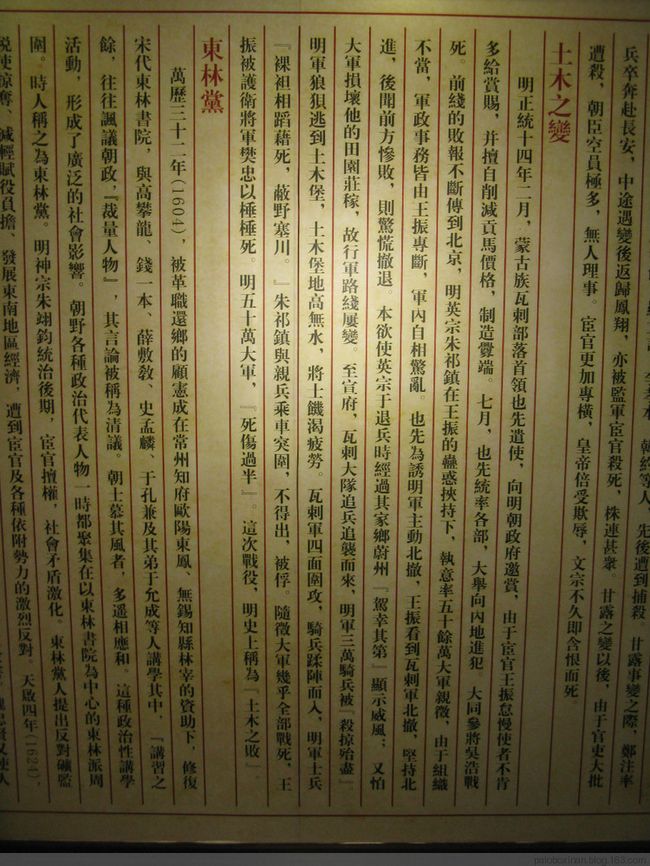 韓約等人，先後遭到捕殺
甘露事變之際，鄭注率
兵卒奔赴長安，中途遇變後返歸鳳翔，亦被監軍宦官殺死，株連甚衆。甘露之變以後，由于官吏大批
遭殺，朝臣空員極多，無人理事。宦官更加專橫，皇帝倍受欺辱，文宗不久即含恨而死
土木之變
明正統十四年二月，蒙古族瓦剌部落首領也先遣使，向明朝政府邀賞，由于宦官王振怠慢使者不肯
多給賞賜，并擅自削減貢馬價格，制造釁端。七月，也先統率各部，大舉向内地進犯。大同參將吳浩戰
死。前綫的敗報不斷傳到北京，明英宗朱祁鎮在王振的蠱惑挾持下，執意率五十餘萬大軍親徵，由于組織
不當，軍政事務皆由王振專斷，軍内自相驚亂。也先為誘明軍主動北撤，王振看到瓦剌軍北撤，堅持北
進，後聞前方慘敗，則驚慌撤退。本欲使英宗于退兵時經過其家鄉蔚州『駕幸其第』顯示威風；又怕
大軍損壞他的田園莊稼，故行軍路綫屢變。至宣府，瓦剌大隊追兵追襲而來，明軍三萬騎兵被『殺掠殆盡』
明軍狼狽逃到土木堡，土木堡地高無水，將士饑渴疲勞。瓦剌軍四面圍攻，騎兵蹂陣而入，明軍士兵
『裸袒相蹈藉死，蔽野塞川。』朱祁鎮與親兵乘車突圍，不得出，被俘。隨徵大軍幾乎全部戰死，王
振被護衛將軍樊忠以棰棰死。明五十萬大軍，『死傷過半』。這次戰役，明史上稱為『土木之敗』
東林黨
萬歷三十二年(1604)，被革職還鄉的顧憲成在常州知府歐陽東鳳、無錫知縣林宰的資助下，修復
宋代東林書院，與高攀龍、錢一本、薛敷教、史孟麟、于孔兼及其弟于允成等人講學其中，『講習之
餘，往往諷議朝政，『裁量人物』，其言論被稱為清議。朝士慕其風者，多遥相應和。這種政治性講學
活動，形成了廣泛的社會影響。朝野各種政治代表人物一時都聚集在以東林書院為中心的東林派周
圍。時人稱之為東林黨。明神宗朱翊鈞統治後期，宦官擅權，社會矛盾激化。東林黨人提出反對礦監
税使掠奪、減輕賦役負擔、發展東南地區經濟，遭到宦官及各種依附勢力的激烈反對。天啟四年(1624)，